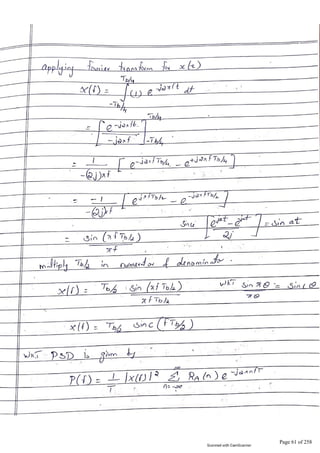 applying Fourier transform for x(t)
x(f) = ∫_{-Tb/4}^{Tb/4} (1) e^{-j2πft} dt
= [ e^{-j2πft} / -j2πf ]_{-Tb/4}^{Tb/4}
= 1 / -(2j)πf [ e^{-j2πfTb/4} - e^{+j2πfTb/4} ]
= -1 / -(2j)πf [ e^{jπfTb/2} - e^{-jπfTb/2} ]
since [ (e^{jat} - e^{-jat}) / 2j ] = sin at
= sin (πf Tb/2) / πf
multiply Tb/2 in numerator & denominator.
x(f) = Tb/2 sin (πf Tb/2) / πf Tb/2
WKT sin πθ / πθ = sinc θ
x(f) = Tb/2 sinc (f Tb/2)
WKT PSD is given by
P(f) = 1/T |x(f)|² Σ_{n=-∞}^{∞} RA(n) e^{-j2πnfT}
Scanned with CamScanner
Page 61 of 258